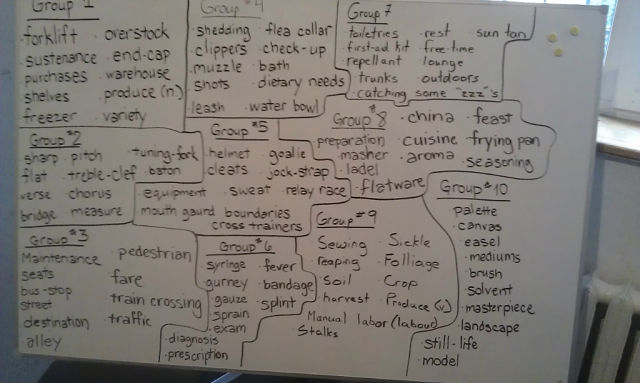 Group 1
forklift · overstock
sustenance · end-cap
purchases · warehouse
shelves · produce (n.)
freezer · variety
Group #4
shedding · flea collar
clippers · check-up
muzzle · bath
shots · dietary needs
leash · water bowl
Group 7
toiletries · rest · sun tan
first-ad kit · free-time
repellant · lounge
trunks · outdoors
·catching some "zzz"'s
Group #2
sharp · pitch · tuning-fork
flat · treble-clef · baton
verse · chorus
bridge · measure
Group #5
helmet · goalie
cleats · jock-strap
equipment · sweat · relay race
mouth gaurd · boundaries
cross trainers
Group #8
· china · feast
preparation · cuisine · frying pan
·masher · aroma · seasoning
·ladel
·flatware
Group #3
Maintenance · pedestrian
seats
bus-stop · fare
street · train crossing
destination · traffic
alley
Group #6
syringe · fever
gurney · bandage
·gauze · splint
·sprain
·exam
·diagnosis
·prescription
Group #9
Sewing · Sickle
·reaping · Folliage
·Soil · Crop
harvest · Produce (v)
Manual labor (labour)
Stalks
Group #10
·palette
·canvas
·easel
·mediums
·brush
·solvent
·masterpiece
·landscape
·still-life
·model